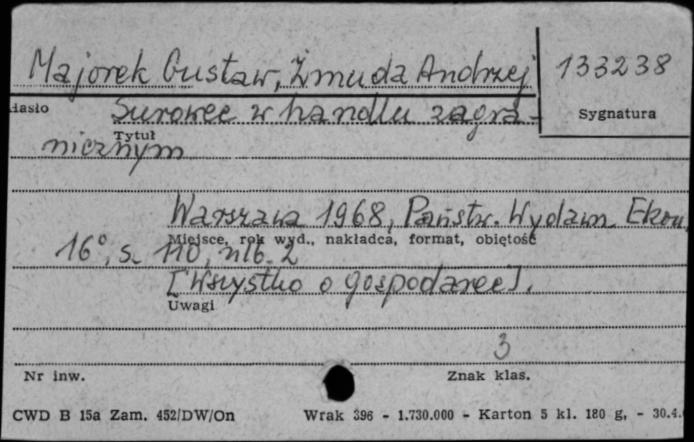 Majorek Gustaw, Żmuda Andrzej
133238
Hasło
Surowce w handlu zagra-
Sygnatura
Tytuł
nicznym
Warszawa 1968, Państw. Wydawn. Ekon.
Miejsce, rok wyd., nakładca, format, objętość
16°, s. 110, nlb. 2
[Wszystko o gospodarce].
Uwagi
3
Nr inw.
Znak klas.
CWD B 15a Zam. 452/DW/On Wrak 396 - 1.730.000 - Karton 5 kl. 180 g, - 30.4.